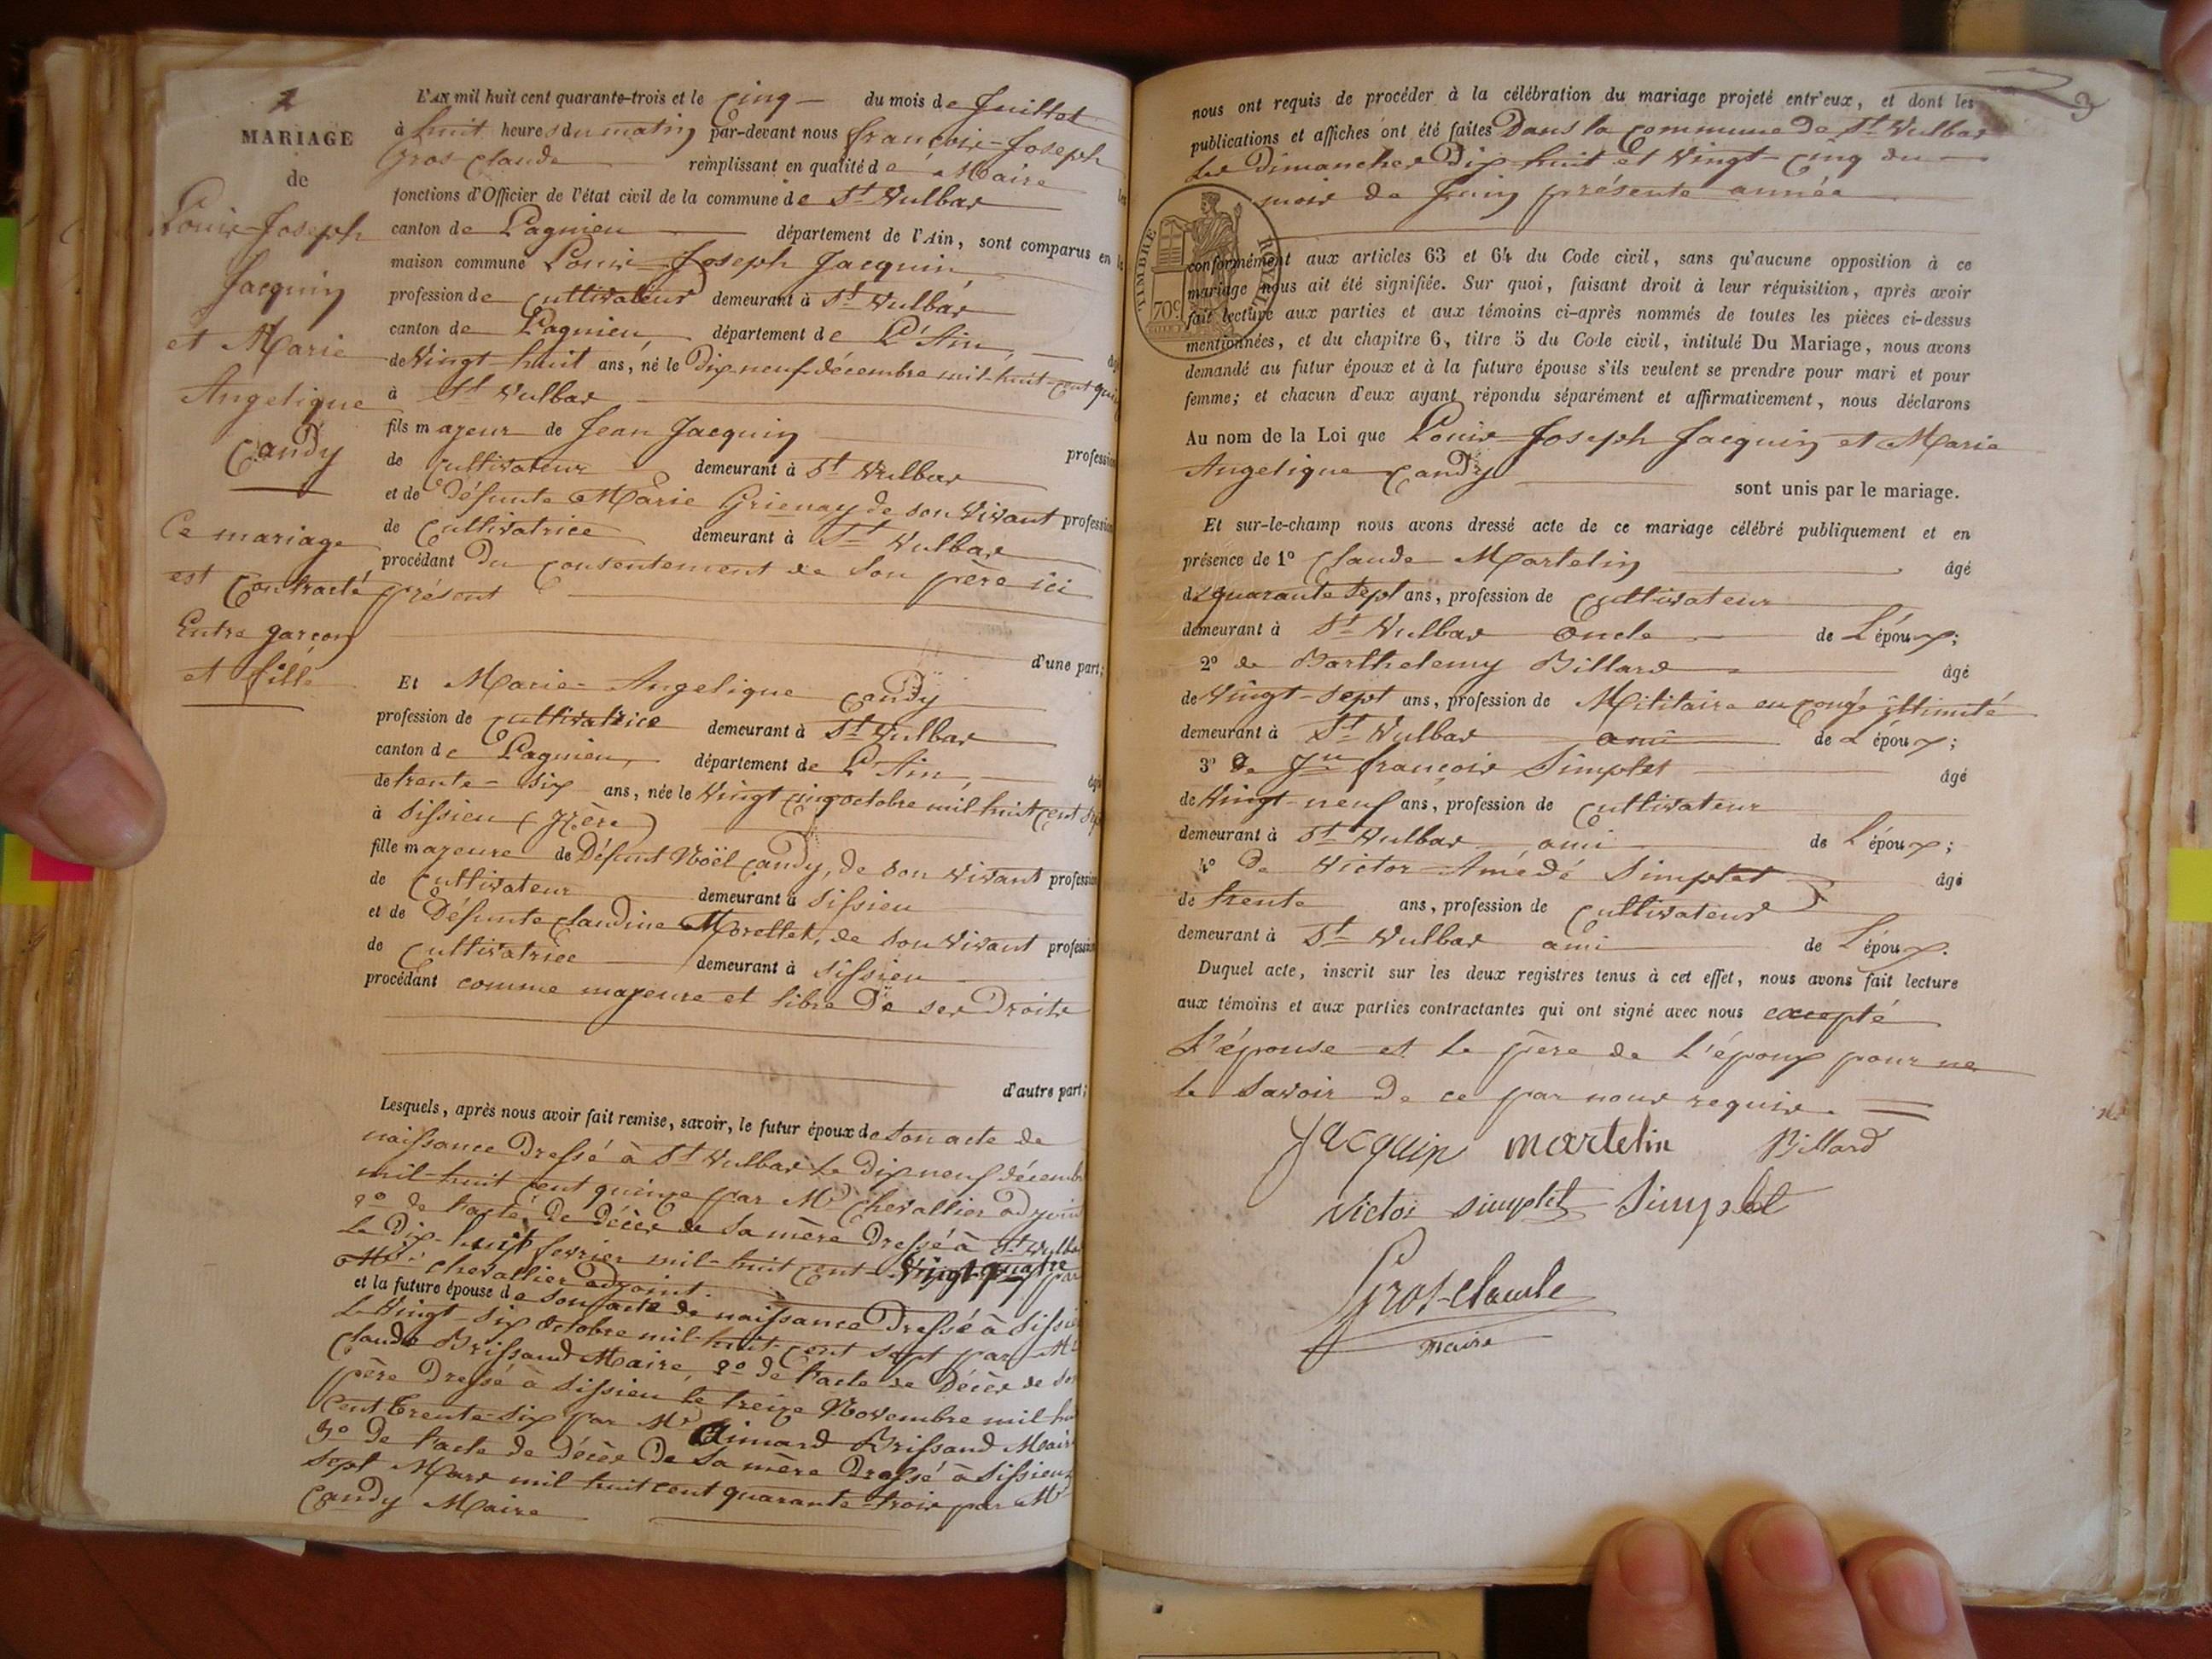 MARIAGE
de
Louis-Joseph
Jacquin
et Marie
Angelique
Candy
Ce mariage
est Contracté
Entre garçon
et fille
L'AN mil huit cent quarante-trois et le Cinq du mois de Juillet
à huit heures du matin par-devant nous françois-Joseph
Gros-Claude remplissant en qualité de Maire les
fonctions d'Officier de l'état civil de la commune de St Vulbas
canton de Lagnieu département de l'Ain, sont comparus en la
maison commune Louis-Joseph Jacquin,
profession de Cultivateur demeurant à St Vulbas
canton de Lagnieu, département de L'Ain, âgé
de Vingt-huit ans, né le Dix neuf décembre mil-huit-cent quin
à St Vulbas
fils majeur de Jean Jacquin profession
de Cultivateur demeurant à St Vulbas
et de Défunte Marie Grienay de son Vivant profession
de Cultivatrice demeurant à St Vulbas
procédant Du Consentement de Son père ici
présent
d'une part;
Et Marie-Angelique Candy
profession de Cultivatrice demeurant à St Vulbas
canton de Lagnieu, département de L'Ain, âgée
de trente-six ans, née le Vingt cinq octobre mil huit Cent Sept
à Sissieu (Isère)
fille majeure de Défunt Noël Candy, de son vivant profession
de Cultivateur demeurant à Sissieu
et de Défunte Claudine Morellet, de Son Vivant profession
de Cultivatrice demeurant à Sissieu
procédant comme majeure et libre De ses Droits
d'autre part;
Lesquels, après nous avoir fait remise, savoir, le futur époux de Son acte de
naissance Dressé à St Vulbas le Dix neuf décembre
mil-huit Cent quinze par Mr Chevallier adjoint
2º de l'acte De décès de Sa mère Dressé à St Vulbas
le Dix-huit fevrier mil-huit Cent-Vingt quatre par
Mr Chevallier adjoint.
et la future épouse de Son acte de naissance Dressé à Sissieu
le Vingt-six octobre mil-huit-cent sept par Mr
Claude Brissaud Maire, 2º de l'acte de Décès de Son
père Dressé à Sissieu le treize Novembre mil-huit
Cent trente-Six par Mr Aimard Brissaud Maire
3º de l'acte de Décès De Sa mère Dressé à Sissieu
Sept Mars mil huit cent quarante-trois par Mr
Candy Maire
3
nous ont requis de procéder à la célébration du mariage projeté entr'eux, et dont les
publications et affiches ont été faites Dans la Commune De St Vulbas
les Dimanches Dix huit et Vingt-Cinq du
mois de Juin présente année
TIMBRE ROYAL
70c
conformément aux articles 63 et 64 du Code civil, sans qu'aucune opposition à ce
mariage nous ait été signifiée. Sur quoi, faisant droit à leur réquisition, après avoir
fait lecture aux parties et aux témoins ci-après nommés de toutes les pièces ci-dessus
mentionnées, et du chapitre 6, titre 5 du Code civil, intitulé Du Mariage, nous avons
demandé au futur époux et à la future épouse s'ils veulent se prendre pour mari et pour
femme; et chacun d'eux ayant répondu séparément et affirmativement, nous déclarons
Au nom de la Loi que Louis-Joseph Jacquin et Marie
Angelique Candy sont unis par le mariage.
Et sur-le-champ nous avons dressé acte de ce mariage célébré publiquement et en
présence de 1º Claude Martelin âgé
de quarante Sept ans, profession de Cultivateur
demeurant à St Vulbas Oncle de L'époux;
2º de Barthelemy Billard âgé
de Vingt-sept ans, profession de Militaire en Congé illimité
demeurant à St Vulbas ami de L'époux;
3º De Jn françois Simplet âgé
de Vingt-neuf ans, profession de Cultivateur
demeurant à St Vulbas ami de L'époux;
4º De Victor-Amédé Simplet âgé
de trente ans, profession de Cultivateur
demeurant à St Vulbas ami de L'époux.
Duquel acte, inscrit sur les deux registres tenus à cet effet, nous avons fait lecture
aux témoins et aux parties contractantes qui ont signé avec nous excepté
L'épouse et le père de L'époux pour ne
le Savoir De ce par nous requis.
Jacquin martelin Billard
Victor simplet Simplet
Gros-Claude
maire